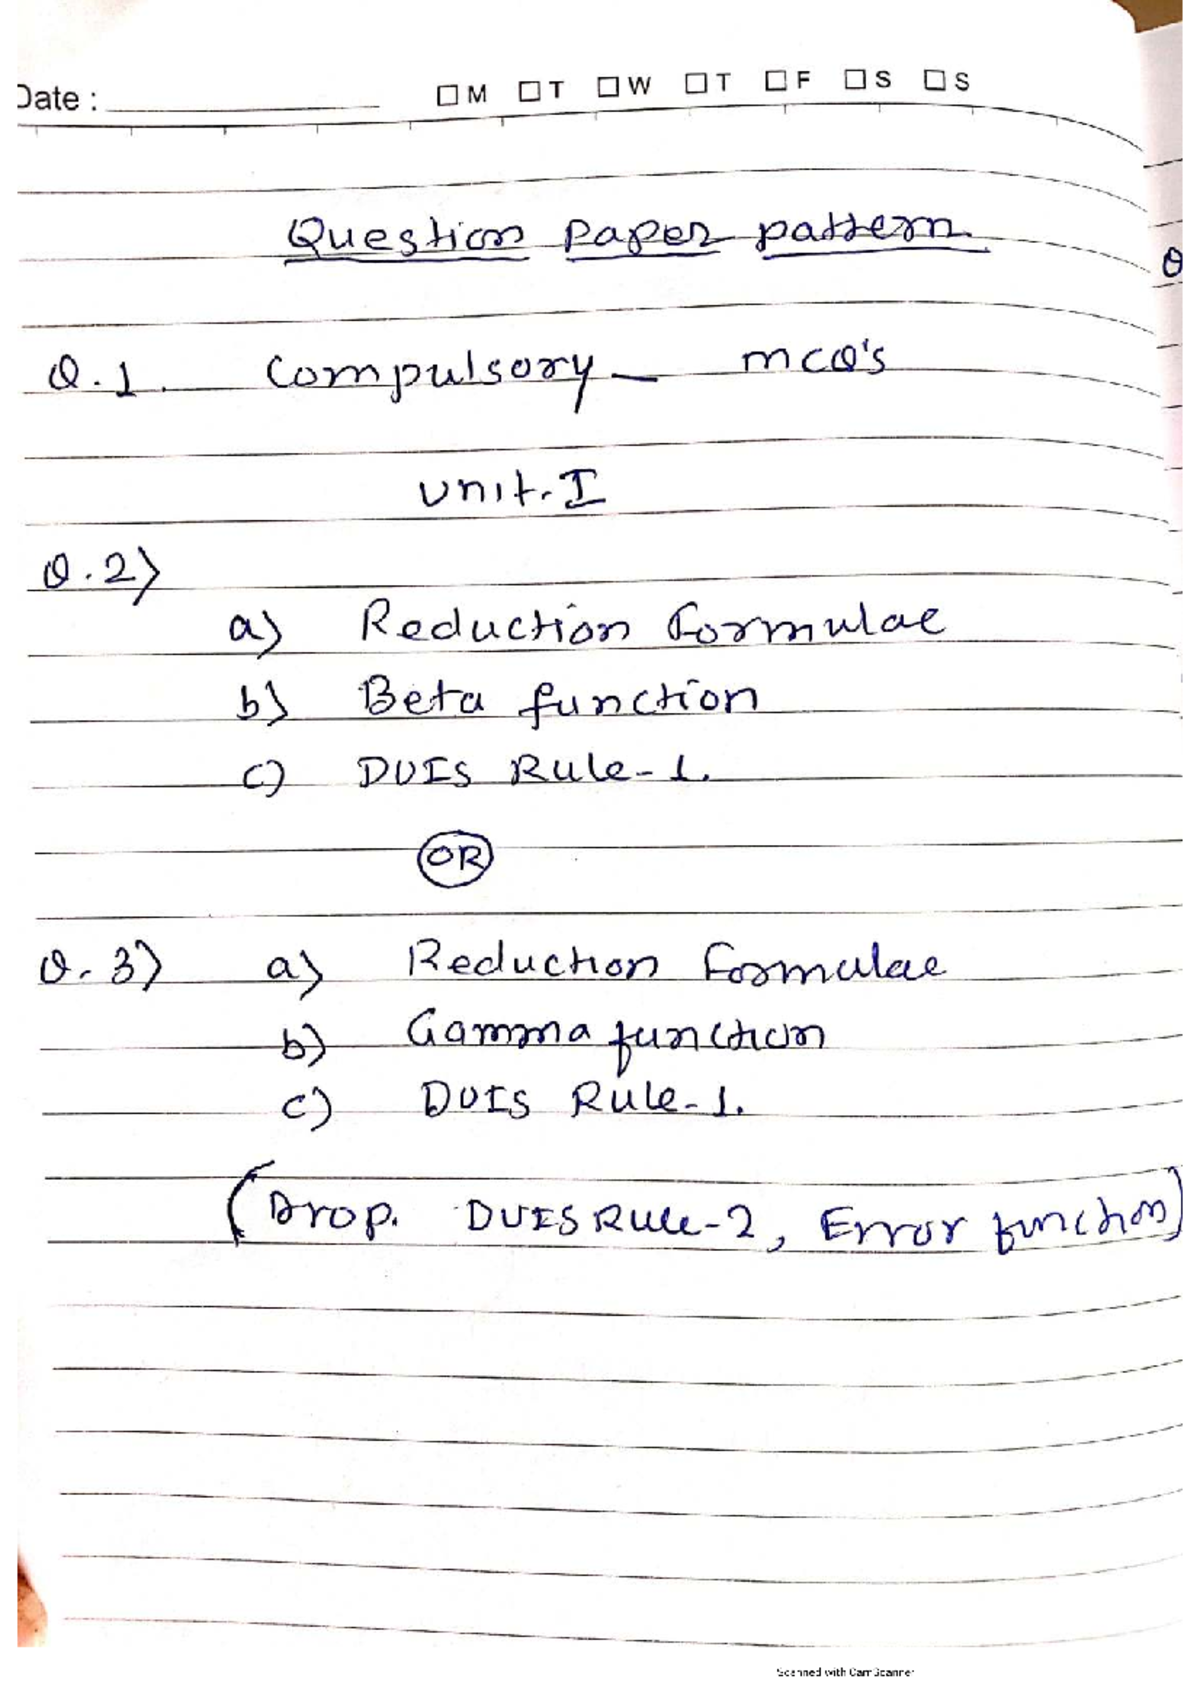 Date : ☐ M ☐ T ☐ W ☐ T ☐ F ☐ S ☐ S
Question Paper pattern
Q.1. Compulsory - mcQ's
Unit. I
Q.2)
a) Reduction formulae
b) Beta function
c) DUIS Rule-1.
OR
Q.3) a) Reduction formulae
b) Gamma function
c) DUIS Rule-1.
(Drop. DUIS Rule-2, Error function)
Scanned with CamScanner